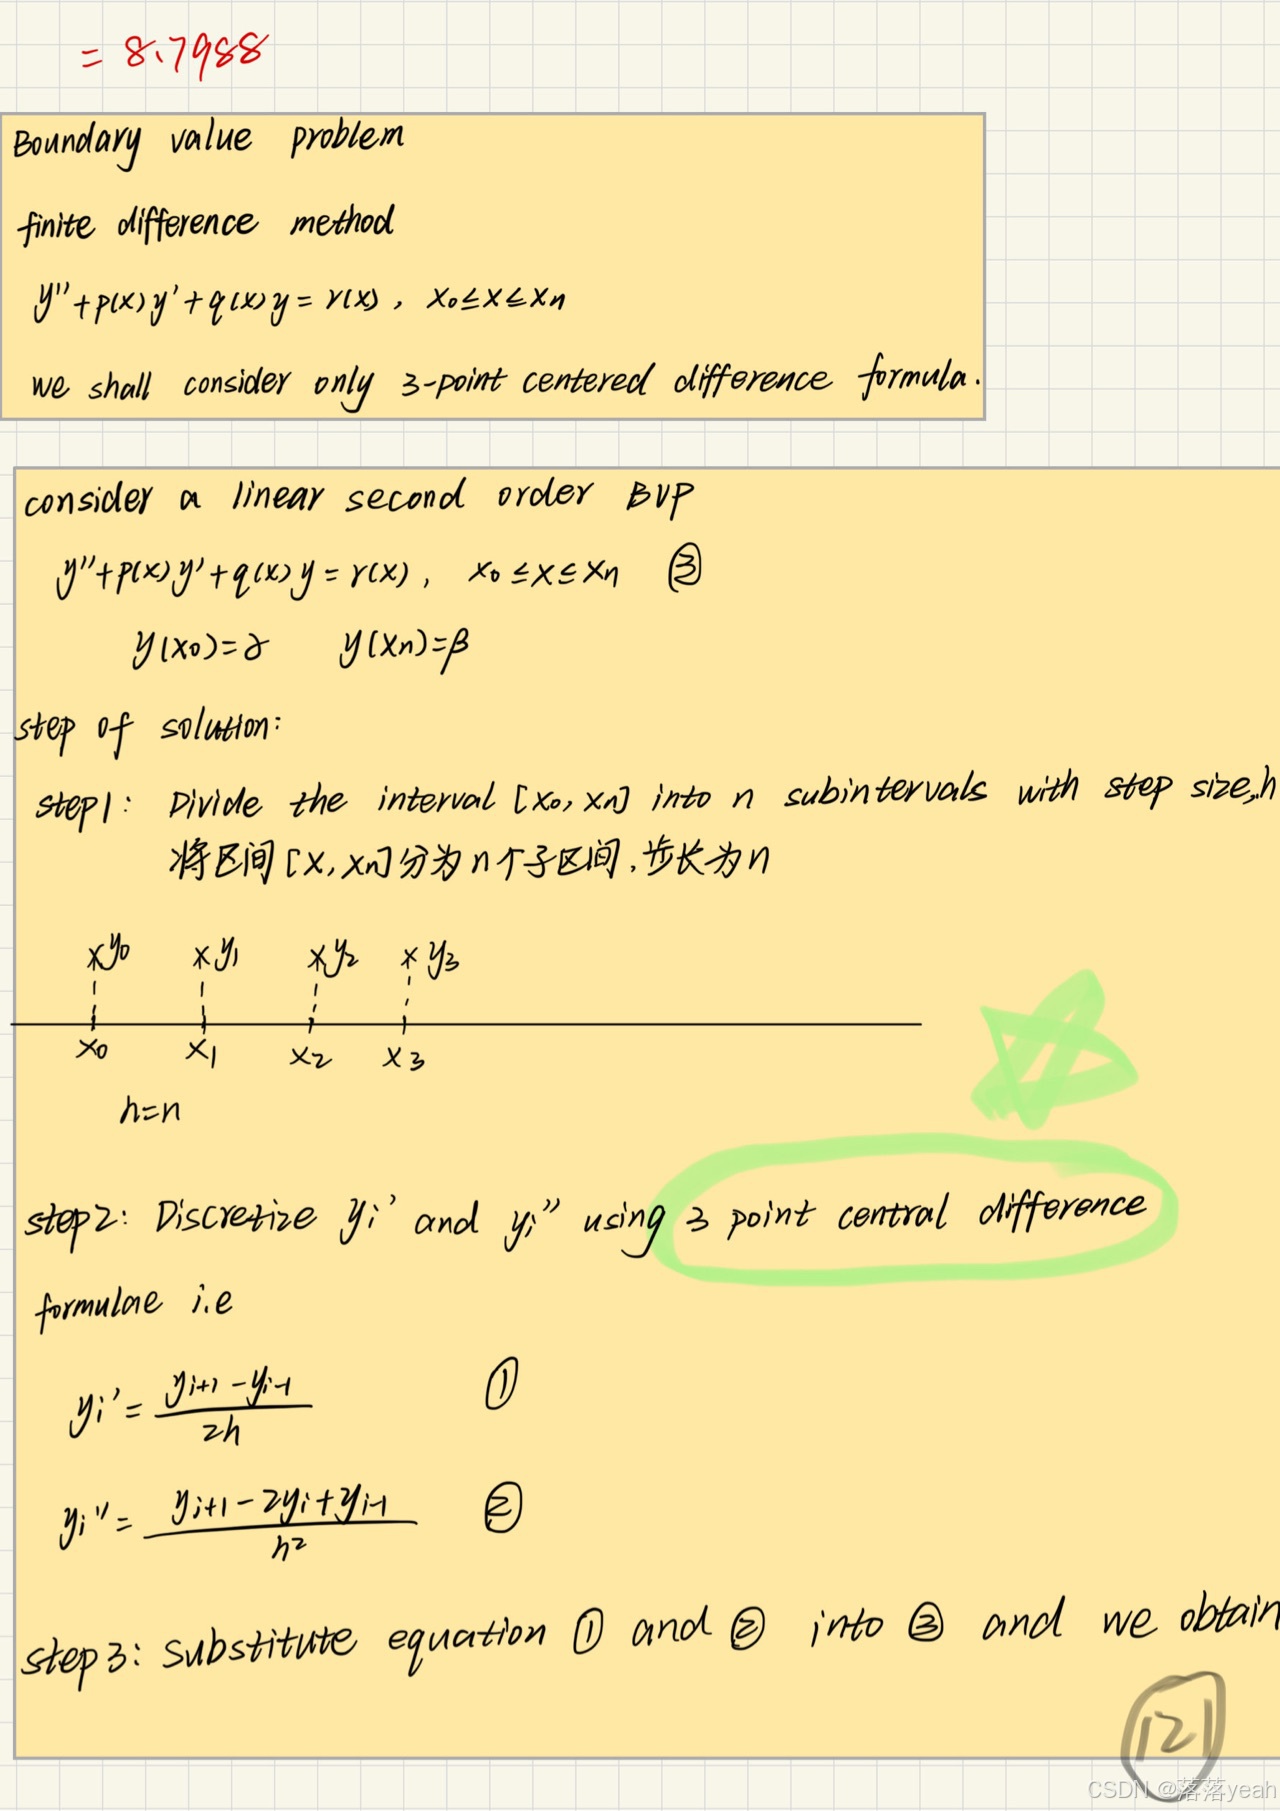 = 8.7988
Boundary value problem
finite difference method
y''+p(x)y'+q(x)y=r(x), x₀≤x≤xn
we shall consider only 3-point centered difference formula.
consider a linear second order BVP
y''+p(x)y'+q(x)y=r(x), x₀≤x≤xn ③
y(x₀)=γ y(xn)=β
step of solution:
step1: Divide the interval [x₀, xn] into n subintervals with step size, h
将区间[x, xn]分为n个子区间,步长为n
y₀ y₁ y₂ y₃
x₀ x₁ x₂ x₃
h=n
step2: Discretize yi' and yi'' using 3 point central difference
formulae i.e
yi' = (yi+1 - yi-1)/2h ①
yi'' = (yi+1 - 2yi + yi-1)/h² ②
step3: substitute equation ① and ② into ③ and we obtain
121
CSDN @落落yeah